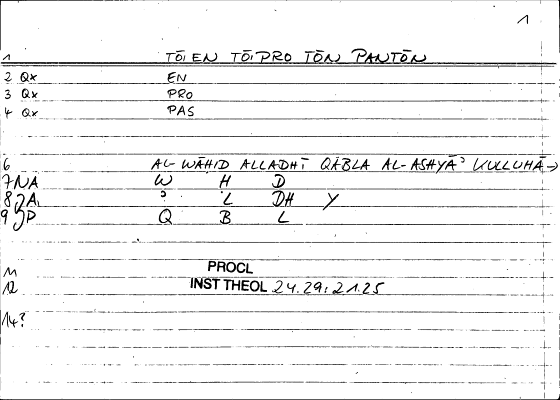 1
1 TŌI EN TŌI PRO TŌN PANTŌN
2 Qx EN
3 Qx PRO
4 Qx PAS
6 AL-WĀHID ALLADHĪ QABLA AL-ASHYĀʾ KULLUHĀ→
7 NA W H D
8 JA ʾ L DH Y
9 JP Q B L
11 PROCL
12 INST THEOL 24.29:21.25
14?